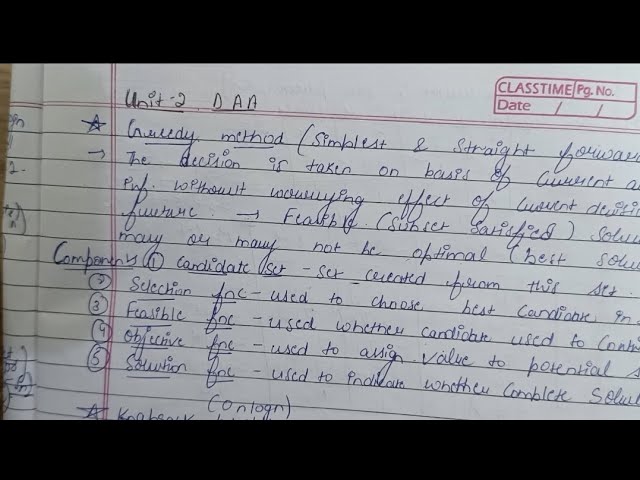 CLASSTIME Pg. No.
Date / /
Unit-2 DAA
☆ Greedy method (Simplest & Straight forward
→ The decision is taken on basis of current a
inf. without worrying effect of current decisi
future. → Feasible (subset satisfied) solu
may or may not be optimal (best solu
Components ① Candidate set - set created from this set
② Selection fnc - used to choose best candidate in
③ Feasible fnc - used whether candidate used to cont
④ Objective fnc - used to assign value to potential s
⑤ Solution fnc - used to indicate whether complete solu
(O nlogn)
☆ Knapsack